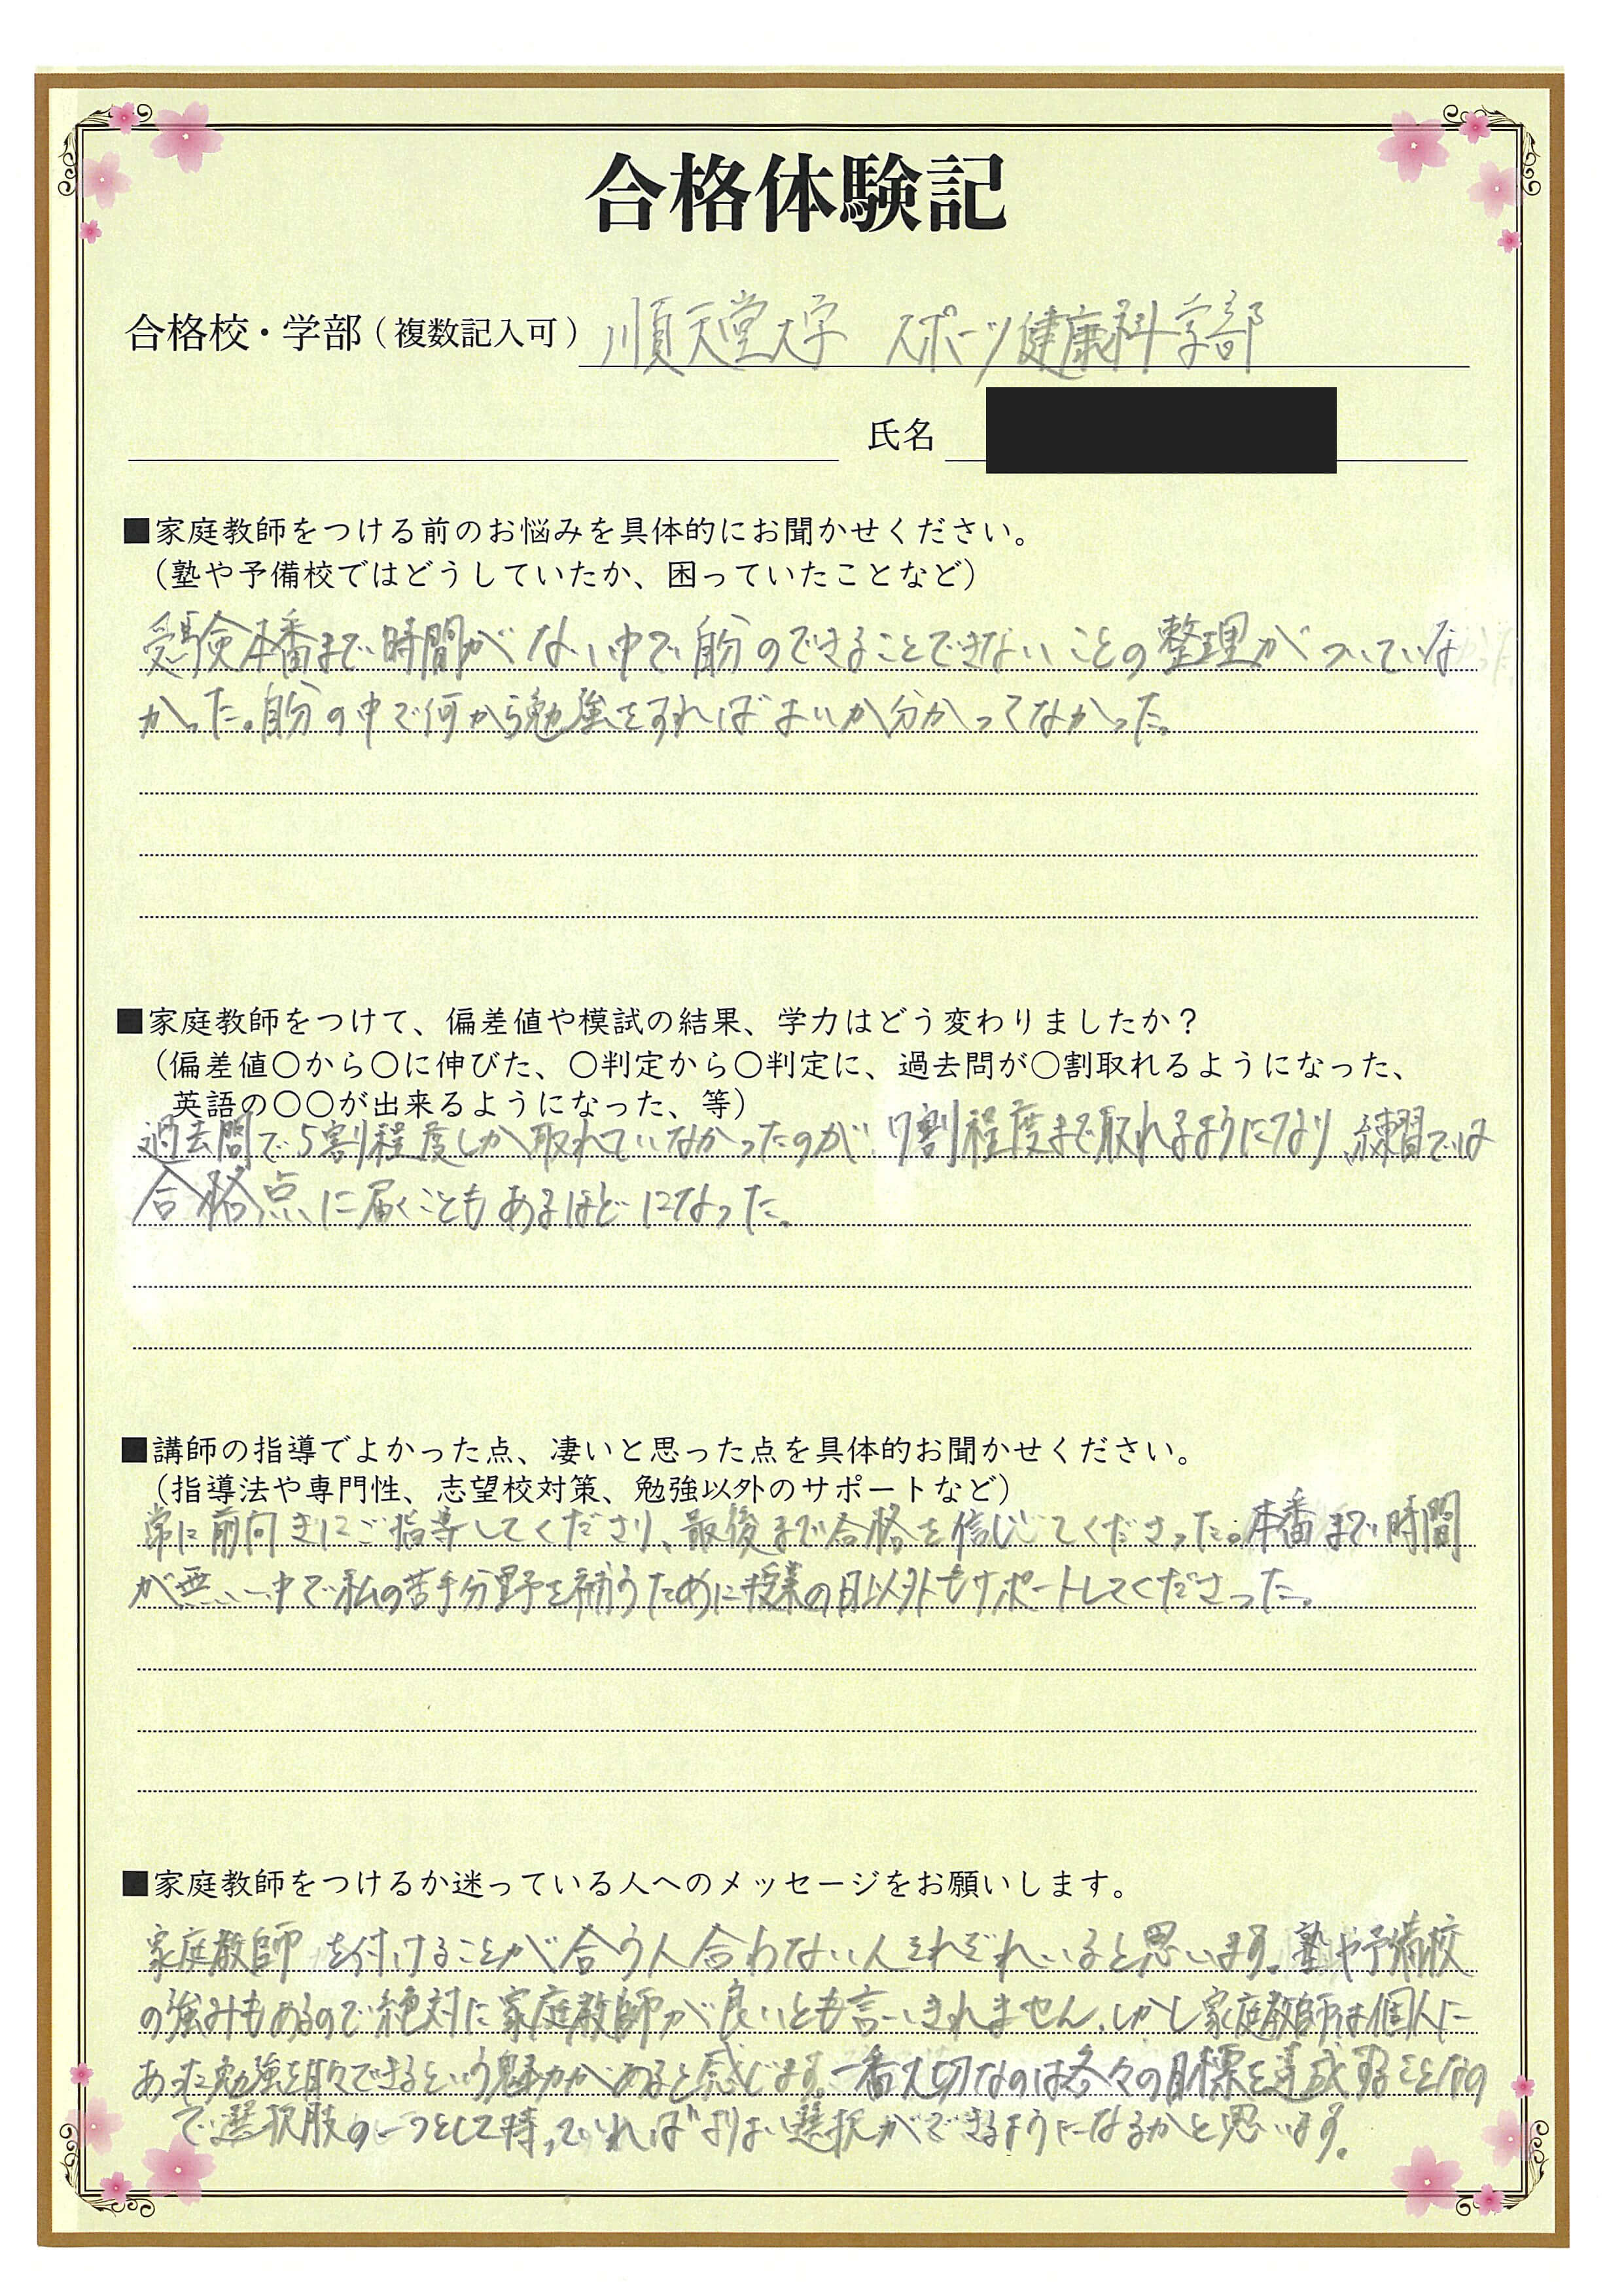 合格体験記
合格校・学部(複数記入可) 順天堂大学 スポーツ健康科学部
氏名
■家庭教師をつける前のお悩みを具体的にお聞かせください。
(塾や予備校ではどうしていたか、困っていたことなど)
受験本番まで時間がない中で自分のできることできないことの整理がついていな
かった。自分の中で何から勉強をすればよいか分かってなかった。
■家庭教師をつけて、偏差値や模試の結果、学力はどう変わりましたか？
(偏差値〇から〇に伸びた、〇判定から〇判定に、過去問が〇割取れるようになった、
英語の〇〇が出来るようになった、等)
過去問で5割程度しか取れていなかったのが、7割程度まで取れるようになり、練習では
合格点に届くこともあるほどになった。
■講師の指導でよかった点、凄いと思った点を具体的お聞かせください。
(指導法や専門性、志望校対策、勉強以外のサポートなど)
常に前向きにご指導してくださり、最後まで合格を信じてくださった。本番まで時間
が無い中で私の苦手分野を補うために授業の日以外もサポートしてくださった。
■家庭教師をつけるか迷っている人へのメッセージをお願いします。
家庭教師を付けることが合う人合わない人それぞれいると思います。塾や予備校
の強みもあるので絶対に家庭教師が良いとも言いきれません。しかし家庭教師は個人に
あった勉強を できるという魅力があると感じます。一番大切なのは各々の目標を達成することなの
で選択肢の一つとして持っていればよりよい選択ができるようになるかと思います。